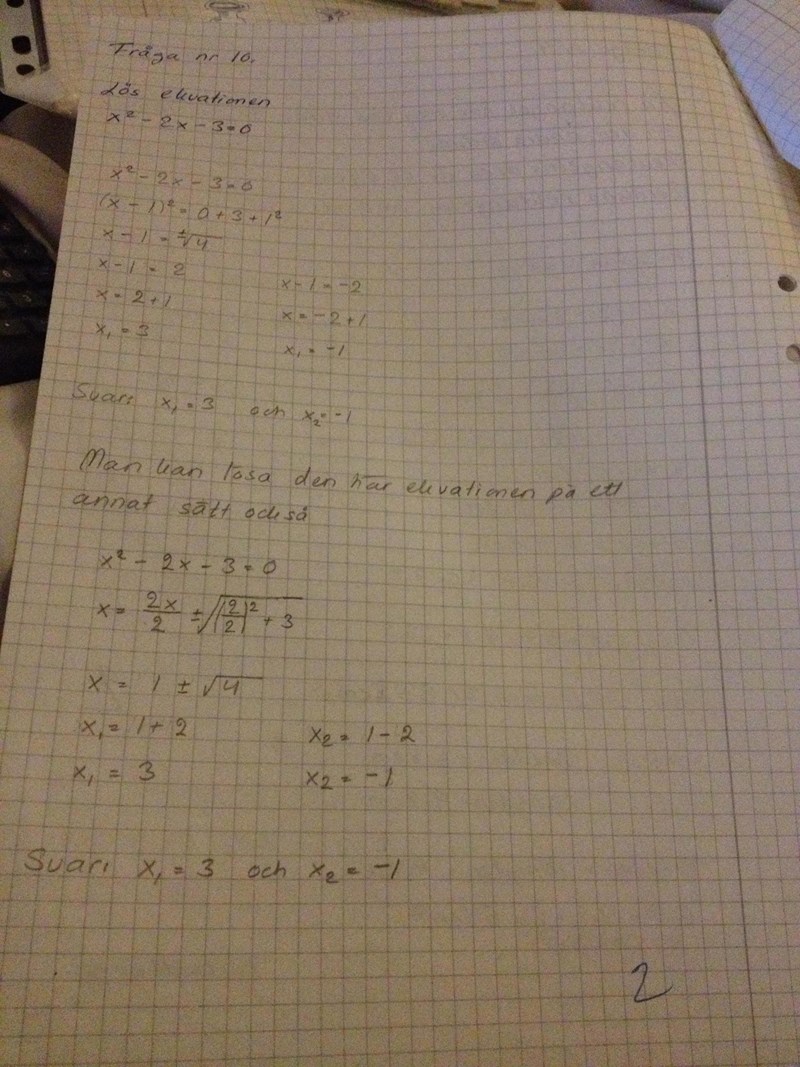 Fråga nr 10.
Lös ekvationen
x² - 2x - 3 = 0
x² - 2x - 3 = 0
(x - 1)² = 0 + 3 + 1²
x - 1 = ±√4
x - 1 = 2
x - 1 = -2
x = 2 + 1
x = -2 + 1
x₁ = 3
x₁ = -1
Svar: x₁ = 3 och x₂ = -1
Man kan lösa den här ekvationen på ett
annat sätt också
x² - 2x - 3 = 0
x = 2x/2 ± √((2/2)² + 3)
x = 1 ± √4
x₁ = 1 + 2
x₂ = 1 - 2
x₁ = 3
x₂ = -1
Svar: x₁ = 3 och x₂ = -1
2